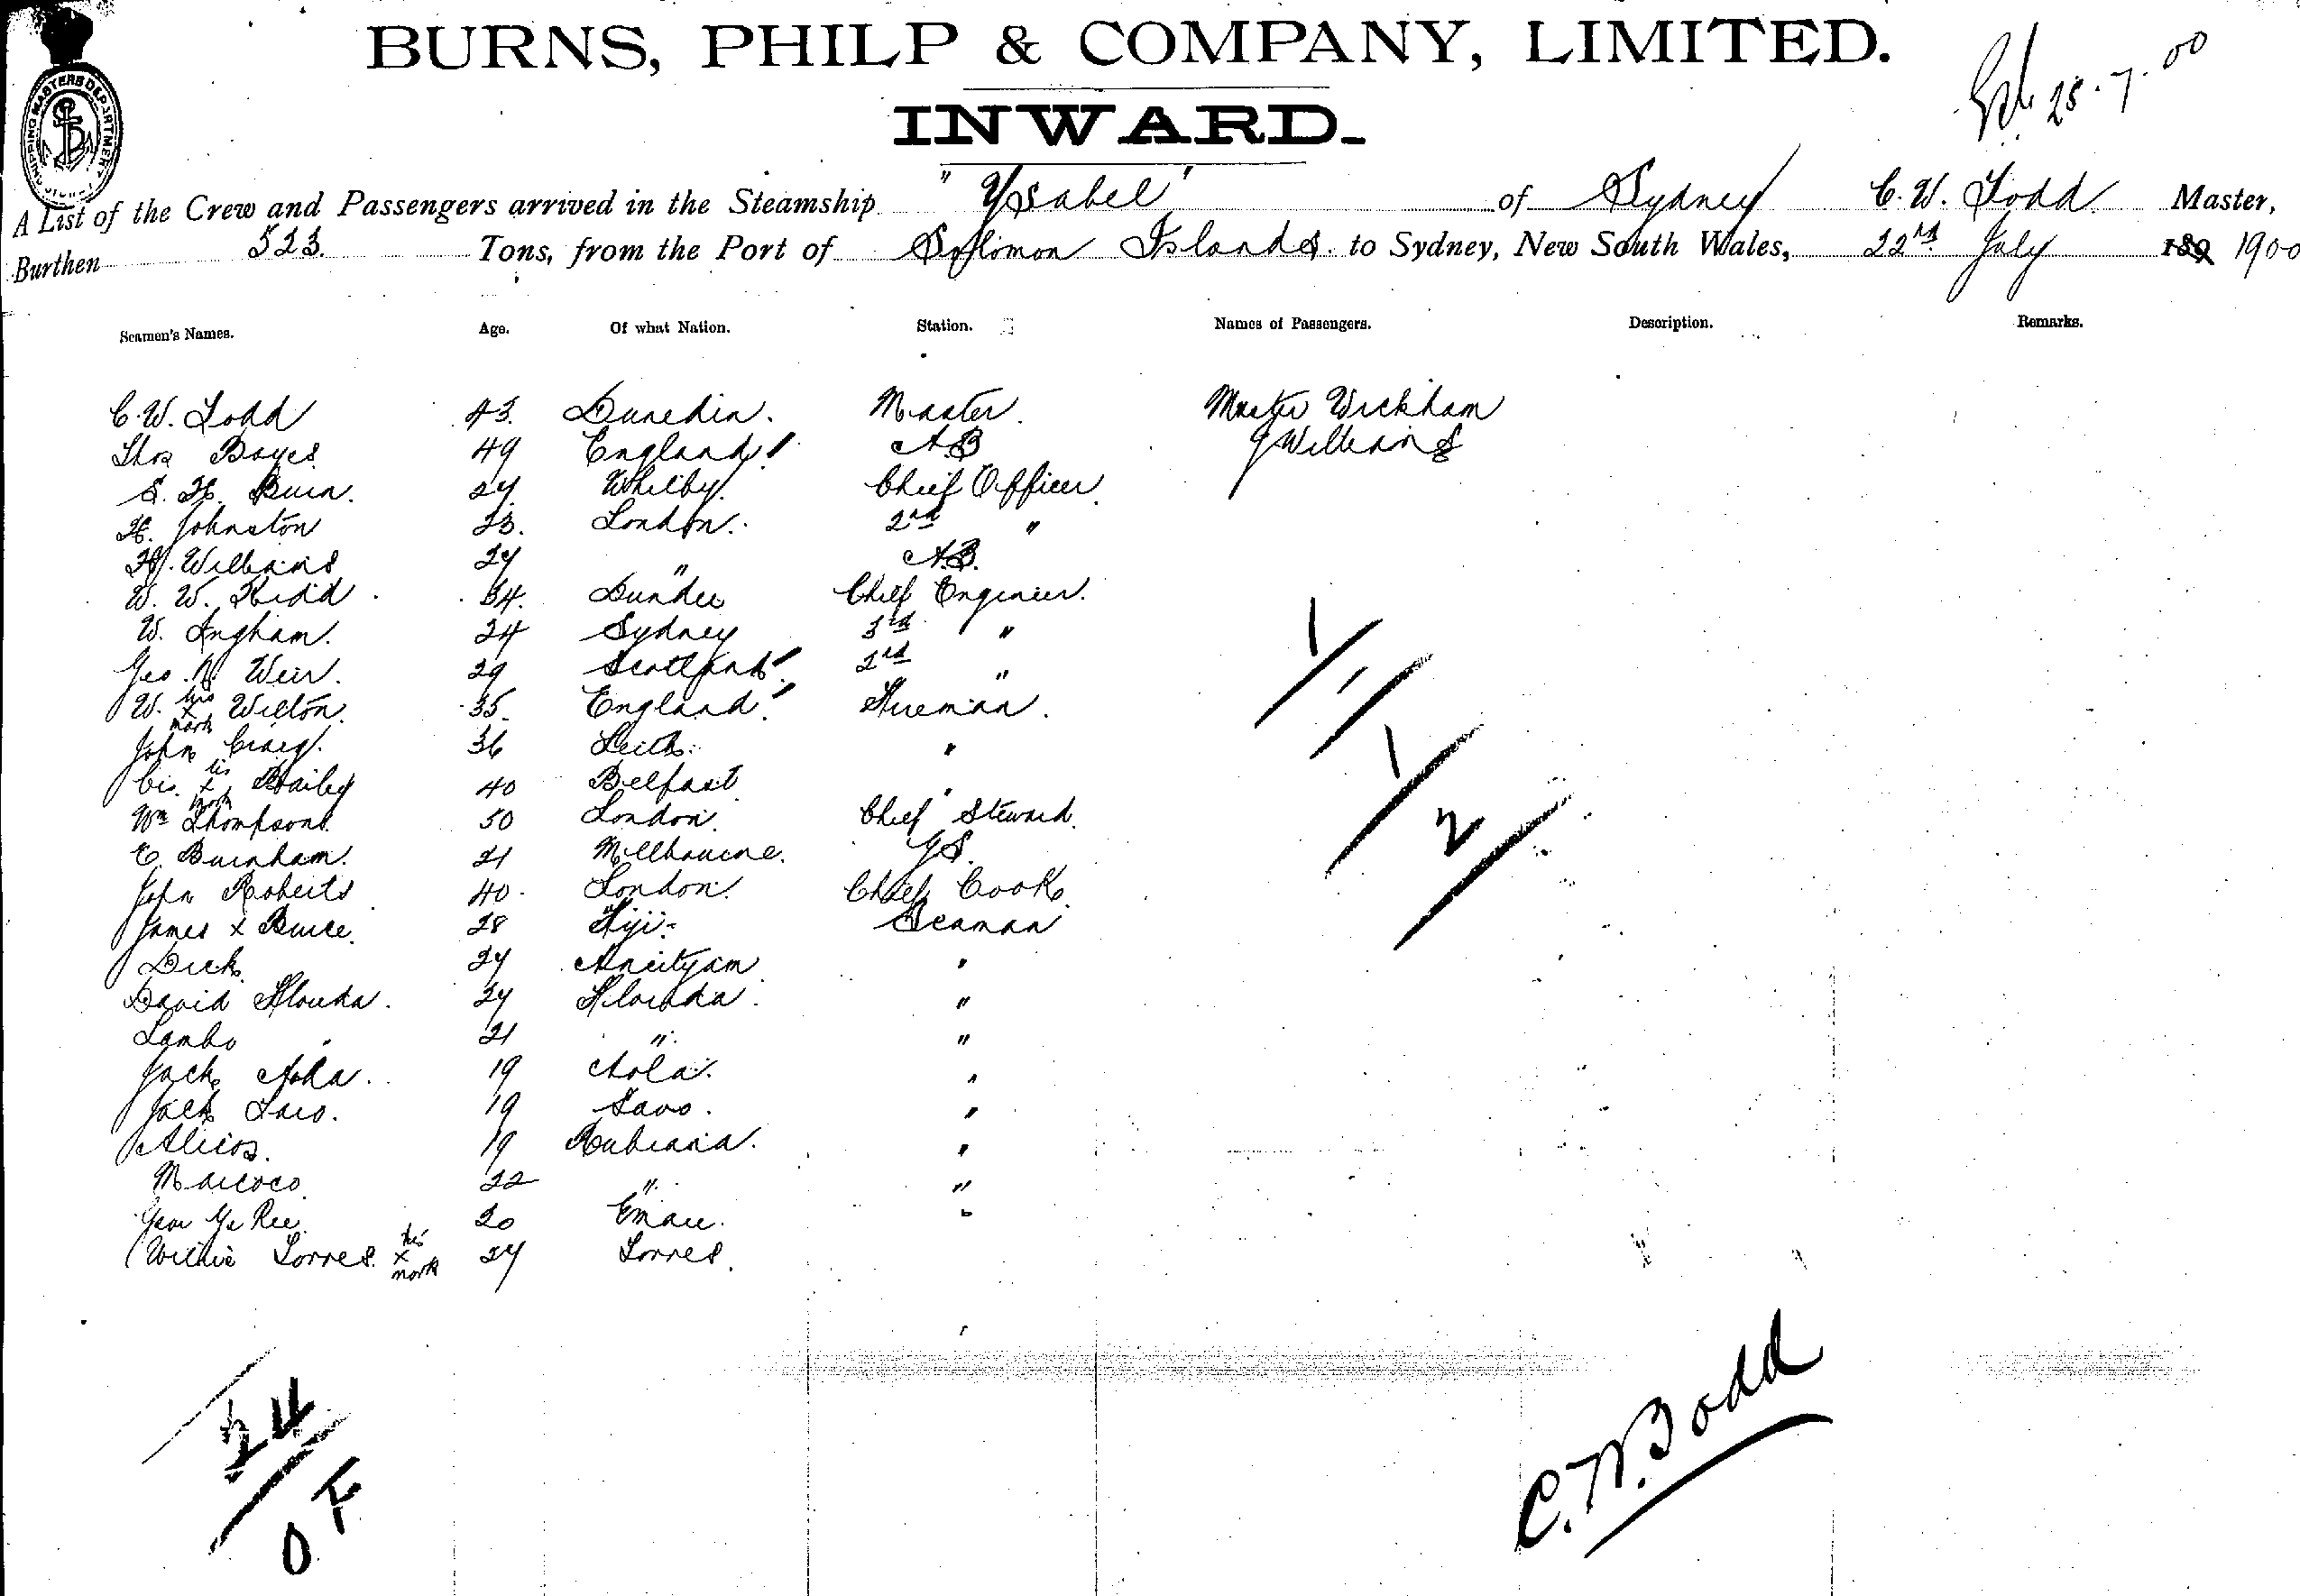 BURNS, PHILP & COMPANY, LIMITED.
25.7.00
INWARD.
SHIPPING MASTERS DEPARTMENT
A List of the Crew and Passengers arrived in the Steamship "Ysabel" of Sydney C. W. Todd Master,
Burthen 523. Tons, from the Port of Solomon Islands to Sydney, New South Wales, 22nd July 189 1900
Seamen's Names. Age. Of what Nation. Station. Names of Passengers. Description. Remarks.
C. W. Todd 43. Dunedin. Master. Master Wickham
Thos Boyes 49 England! AB G Williams
S. H. Burn. 27 Whitby. Chief Officer
H. Johnston 23. London. 2nd "
H. Williams 27 " A.B.
W. W. Kidd 34. Dundee Chief Engineer.
W. Ingham. 24 Sydney 3rd "
Geo. Weir. 29 Scotland! 2nd "
W. his x mark Wilton. 35. England! Fireman.
John Craig. 36 Leith. "
his x mark Bailey 40 Belfast "
Wm Thompson 50 London. Chief Steward.
E. Burnham. 21 Melbourne. G.S.
John Roberts 40. London. Chief Cook.
James x Bruce. 28 Fiji. Seaman
Dick. 27 Aneityum "
David Florida. 27 Florida. "
Lambo " 21 " "
Jack Aola. 19 Aola. "
Jack Savo. 19 Savo. "
19 Rubiana. "
Marcoco 22 " "
20 Emau. "
Willie Torres. his x mark 27 Torres.
1/1/1/2
24
C. W. Todd